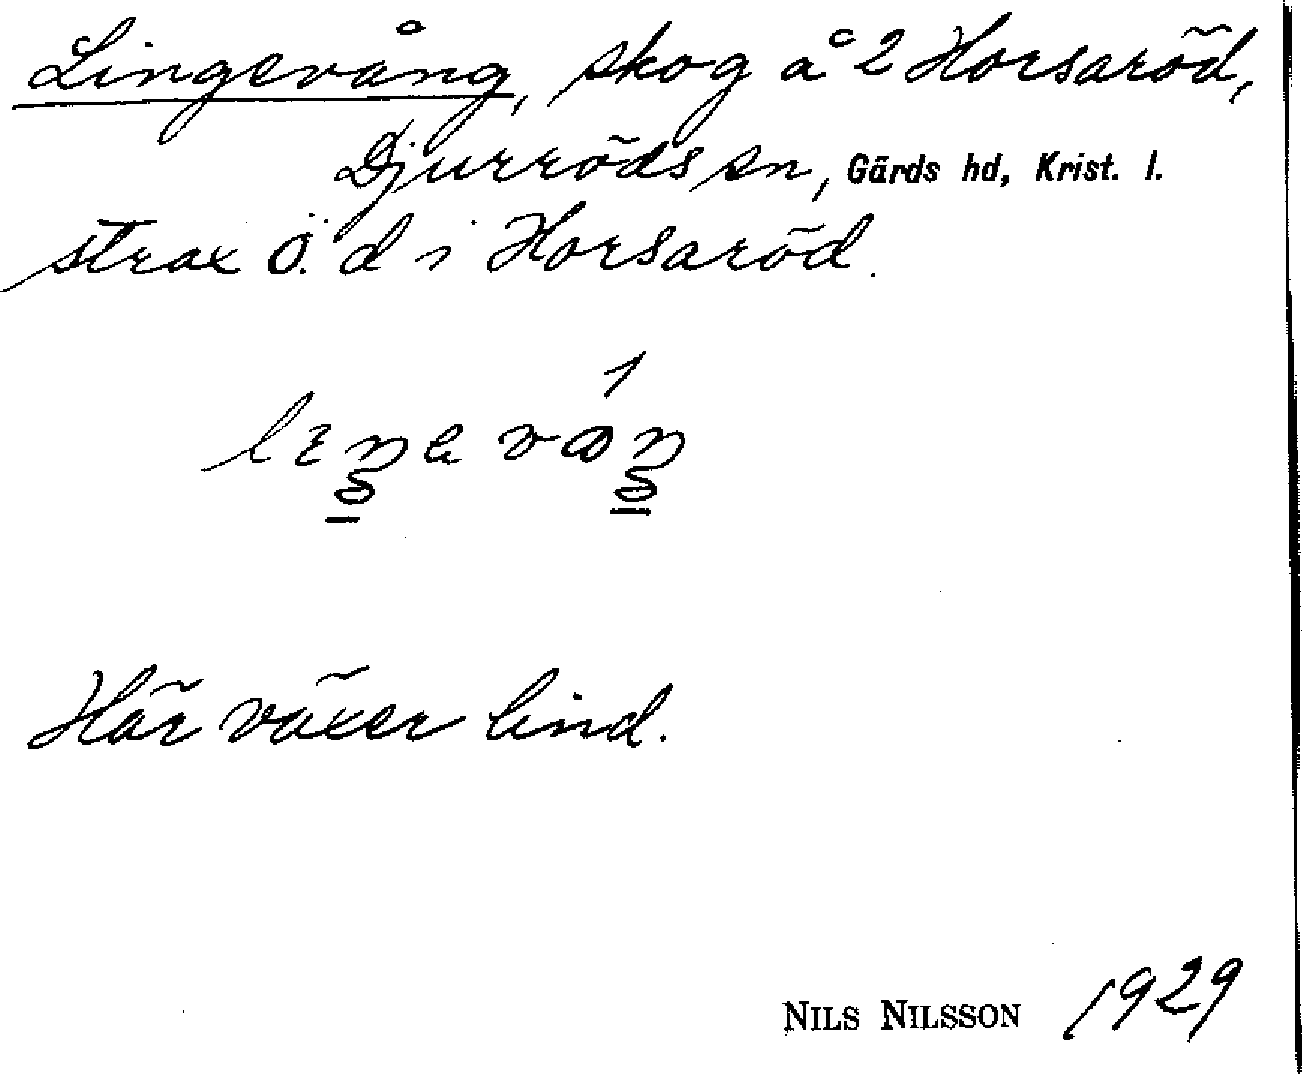 Lingevång, skog å 2 Horsaröd,
Djurröds sn, Gärds hd, Krist. l.
strax Ö. d i Horsaröd.
Här växer lind.
NILS NILSSON 1929